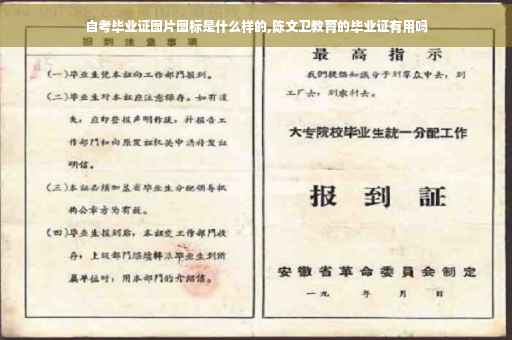 自考毕业证图片图标是什么样的,陈文卫教育的毕业证有用吗
报到注意事项
(一)毕业生凭本证向工作部门报到。
(二)毕业生对本证应注意保存。如有遗
失,应即登报声明作废,并报告工
作部门和向原发证机关申请补发证
明信。
(三)本证必须加盖省毕业生分配领导机
构公章方为有效。
(四)毕业生报到后,本证交工作部门收
存,上级部门继续转派毕业生到所
属单位时,用本部门的介绍信。
最高指示
我们提倡知识分子到群众中去,到
工厂去,到农村去。
大专院校毕业生统一分配工作
报到証
安徽省革命委员会制定
一九 年 月 日